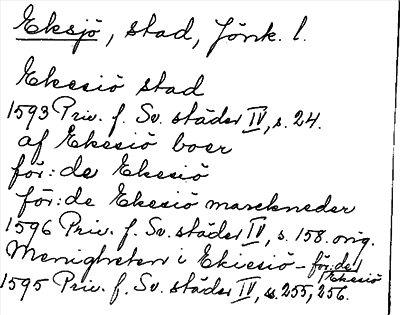 Eksjö, stad, Jönk. l.
Ekesiö stad
1593 Priv. f. Sv. städer IV, s. 24.
af Ekesiö boer
för:de Ekesiö
för:de Ekesiö marckneder
1596 Priv. f. Sv. städer IV, s. 158. orig.
Menigheten i Ekiesiö - för:de / Ekesiö
1595 Priv. f. Sv. städer IV, s. 255, 256.